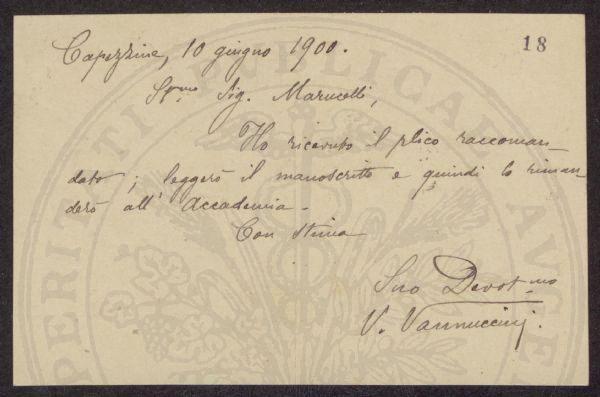 18
Capezzine, 10 giugno 1900.
Sig. Marucelli,
Ho ricevuto il plico raccoman-
dato; leggerò il manoscritto e quindi lo riman-
derò all' Accademia.
Con stima
Suo Devot.mo
V. Vannuccini.
PERITI
PUBLICAE